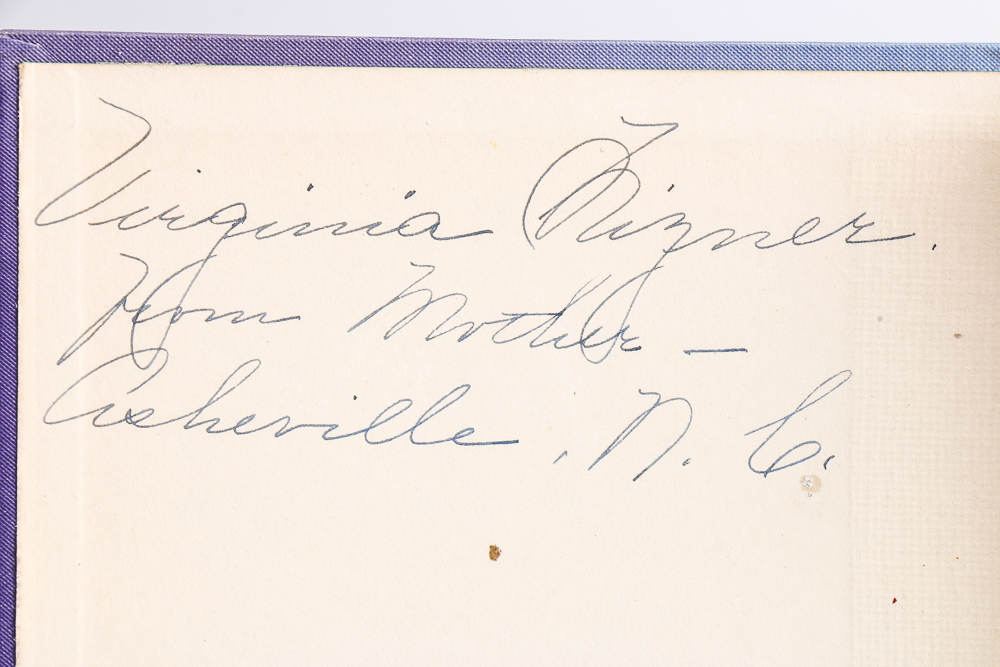 Virginia
From Mother —
Asheville, N. C.